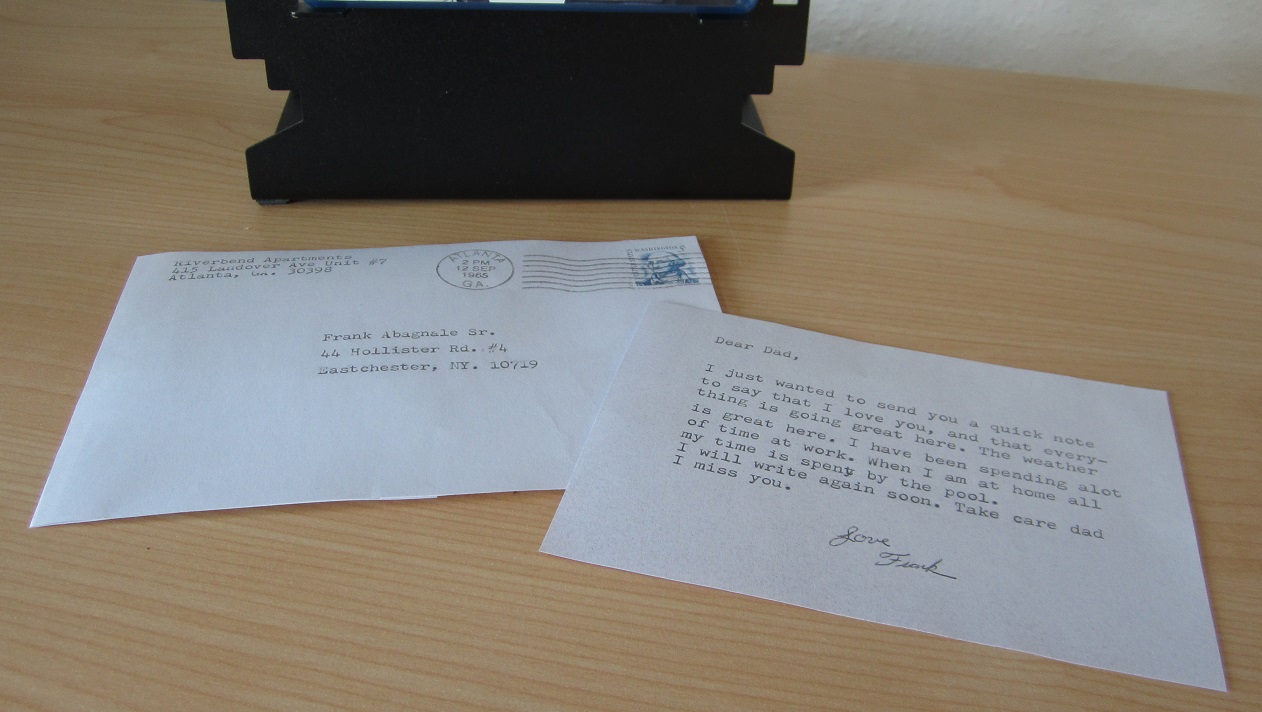 Riverbend Apartments
415 Landover Ave Unit #7
Atlanta, Ga. 30398
ATLANTA
2 PM
12 SEP
1965
GA.
WASHINGTON
Frank Abagnale Sr.
44 Hollister Rd. #4
Eastchester, NY. 10719
Dear Dad,
I just wanted to send you a quick note
to say that I love you, and that every-
thing is going great here. The weather
is great here. I have been spending alot
of time at work. When I am at home all
my time is spent by the pool.
I will write again soon. Take care dad
I miss you.
Love
Frank